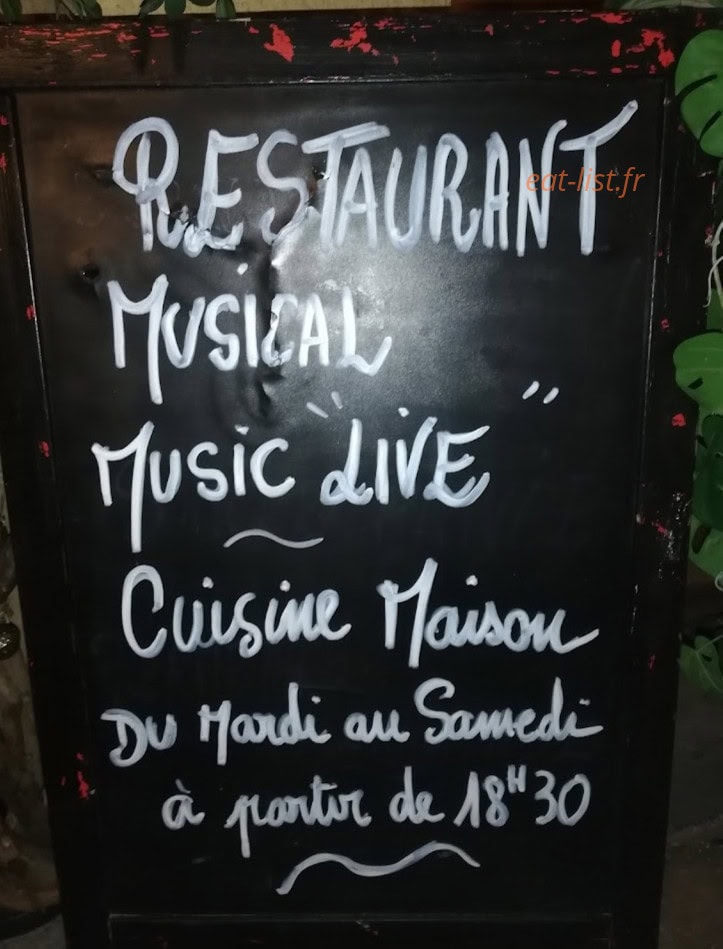 RESTAURANT
eat-list.fr
MUSICAL
MUSIC "LIVE"
Cuisine Maison
Du Mardi au Samedi
à partir de 18H30